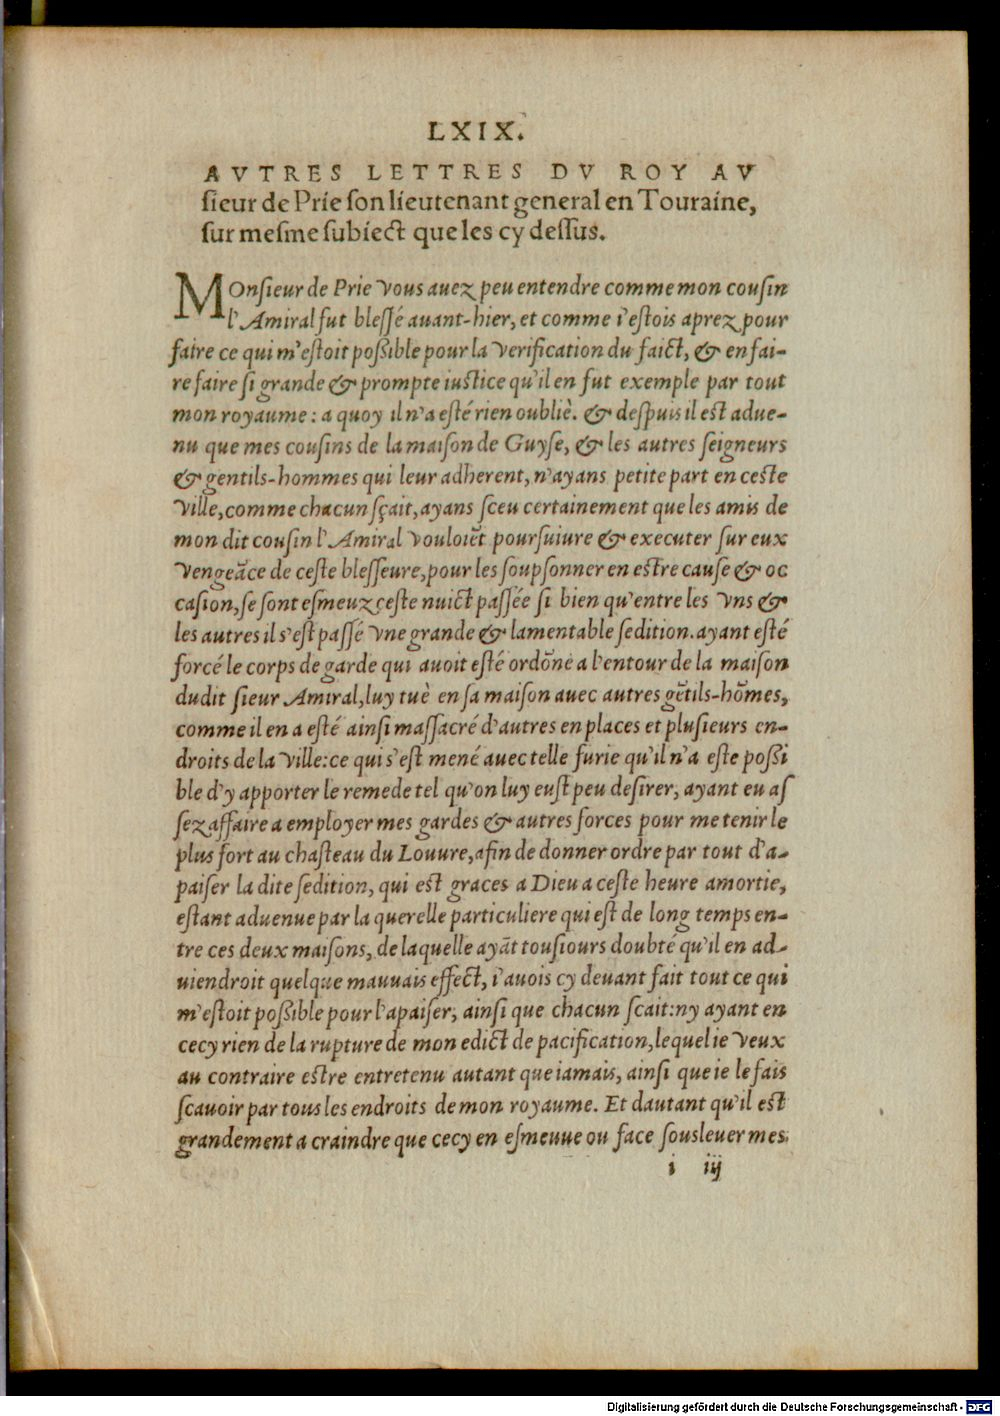 LXIX.
AVTRES LETTRES DV ROY AV
ſieur de Prie ſon lieutenant general en Touraine,
ſur meſme ſubiect que les cy deſſus.
MOnſieur de Prie vous auez peu entendre comme mon couſin
l'Amiral fut bleſſé auant-hier, et comme i'eſtois aprez pour
faire ce qui m'eſtoit poßible pour la verification du faict, & en fai-
re faire ſi grande & prompte iuſtice qu'il en fut exemple par tout
mon royaume: a quoy il n'a eſté rien oubliè. & deſpuis il eſt adue-
nu que mes couſins de la maiſon de Guyſe, & les autres ſeigneurs
& gentils-hommes qui leur adherent, n'ayans petite part en ceſte
ville, comme chacun ſçait, ayans ſceu certainement que les amis de
mon dit couſin l'Amiral vouloiẽt pourſuiure & executer ſur eux
vengeãce de ceſte bleſſeure, pour les ſoupſonner en eſtre cauſe & oc
caſion, ſe ſont eſmeuz ceſte nuict paſſée ſi bien qu'entre les vns &
les autres il s'eſt paſſé vne grande & lamentable ſedition. ayant eſté
forcé le corps de garde qui auoit eſté ordõné a l'entour de la maiſon
dudit ſieur Amiral, luy tuè en ſa maiſon auec autres gẽtils-hõmes,
comme il en a eſté ainſi maſſacré d'autres en places et pluſieurs en-
droits de la ville: ce qui s'eſt mené auec telle furie qu'il n'a eſte poßi
ble d'y apporter le remede tel qu'on luy euſt peu deſirer, ayant eu aſ
ſez affaire a employer mes gardes & autres forces pour me tenir le
plus fort au chaſteau du Louure, afin de donner ordre par tout d'a-
paiſer la dite ſedition, qui eſt graces a Dieu a ceſte heure amortie,
eſtant aduenue par la querelle particuliere qui eſt de long temps en-
tre ces deux maiſons, de laquelle ayãt touſiours doubté qu'il en ad-
uiendroit quelque mauuais effect, i'auois cy deuant fait tout ce qui
m'eſtoit poßible pour l'apaiſer, ainſi que chacun ſcait: ny ayant en
cecy rien de la rupture de mon edict de pacification, lequel ie veux
au contraire eſtre entretenu autant que iamais, ainſi que ie le fais
ſcauoir par tous les endroits de mon royaume. Et dautant qu'il eſt
grandement a craindre que cecy en eſmeuue ou face ſousleuer mes
i iij
Digitalisierung gefördert durch die Deutsche Forschungsgemeinschaft - DFG